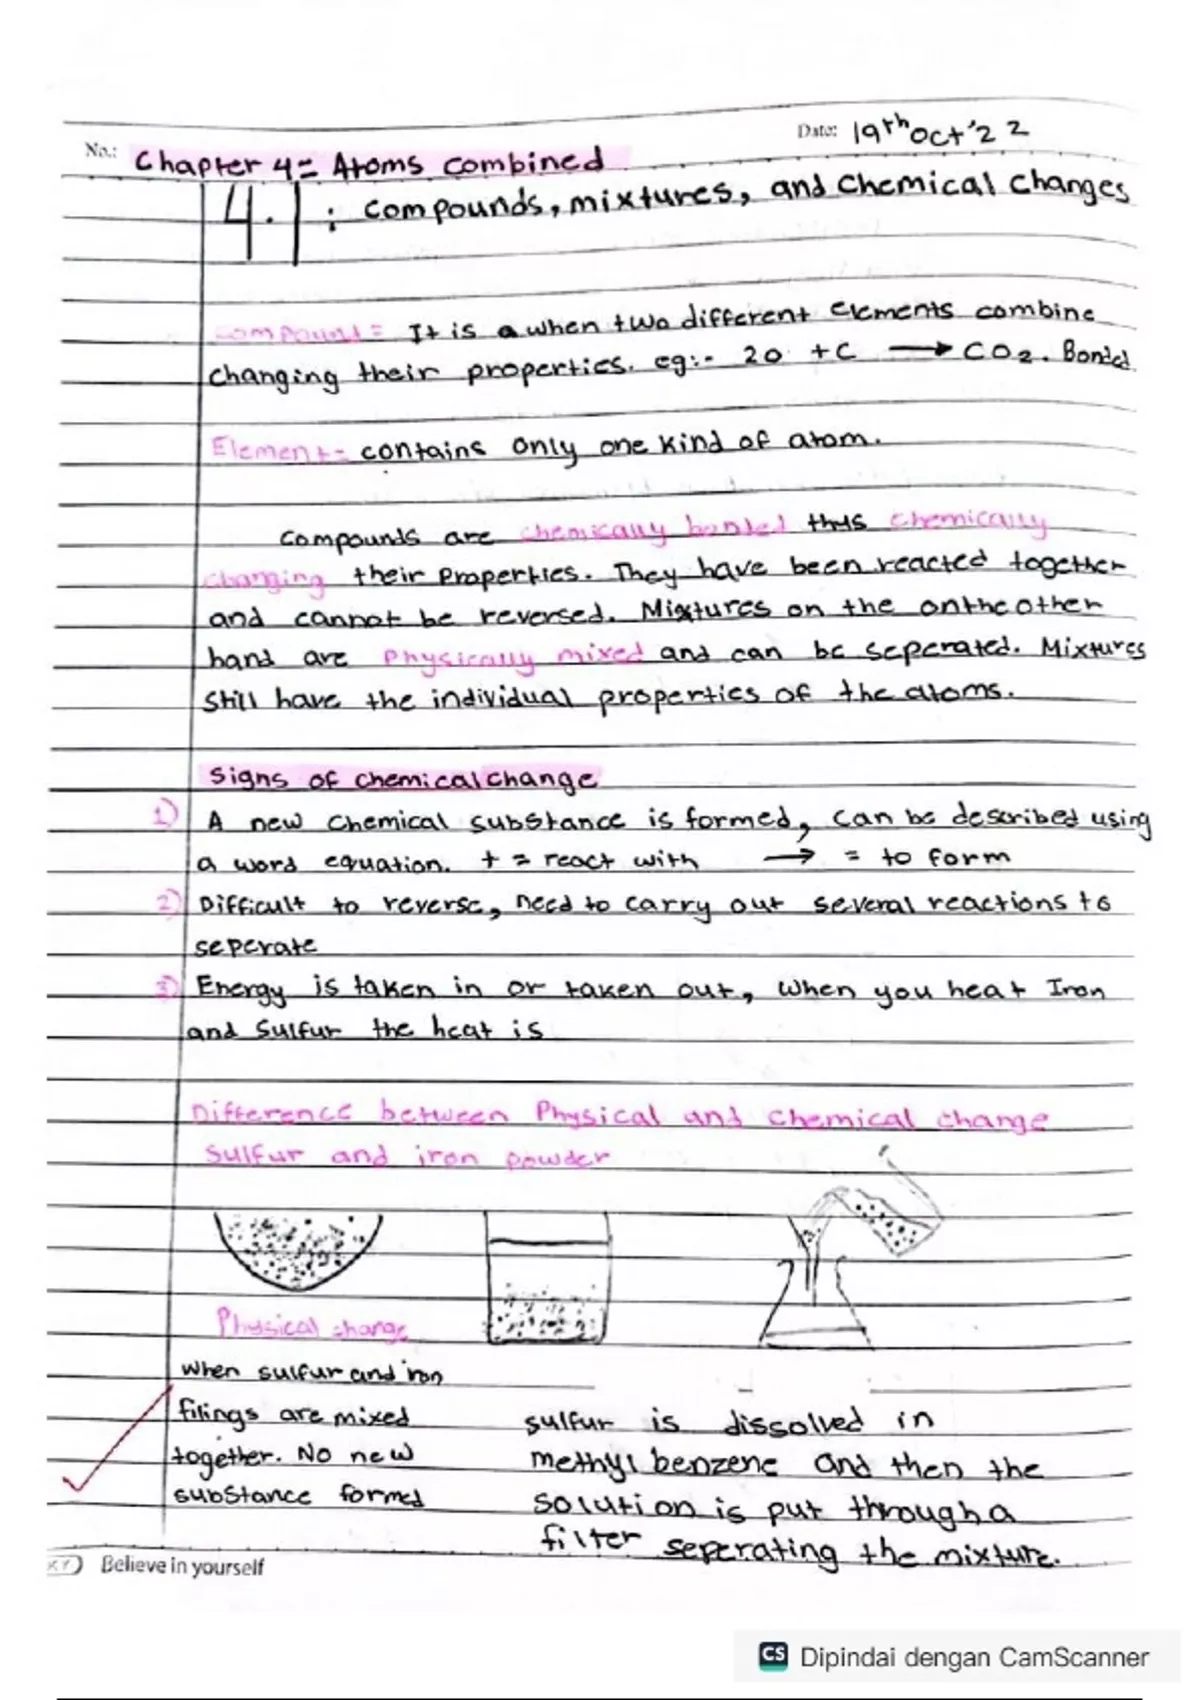 Date: 19th Oct '22
No.: Chapter 4 = Atoms combined
4.1 : compounds, mixtures, and chemical changes
Compound = It is a when two different elements combine
changing their properties. eg:- 2O + C → CO2. Bonded
Element = contains only one kind of atom.
Compounds are chemically bonded thus chemically
changing their properties. They have been reacted together
and cannot be reversed. Mixtures on the onthe other
hand are Physically mixed and can be seperated. Mixtures
still have the individual properties of the atoms.
Signs of chemical change
1) A new chemical substance is formed, can be described using
a word equation. + = react with → = to form
2) Difficult to reverse, need to carry out several reactions to
seperate
3) Energy is taken in or taken out, when you heat Iron
and Sulfur the heat is
Difference between Physical and chemical change
Sulfur and iron powder
Physical change
when sulfur and iron
filings are mixed
together. No new
substance formed
sulfur is dissolved in
methyl benzene and then the
solution is put through a
filter seperating the mixture.
KY Believe in yourself
CS Dipindai dengan CamScanner